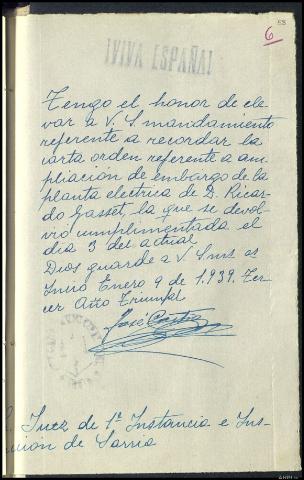 53
6
¡VIVA ESPAÑA!
Tengo el honor de ele-
var a V. S. mandamiento
referente a recordar la
carta orden referente a am-
pliacion de embargo de la
planta electrica de D. Ricar-
do Gasset, la que se devol-
vió cumplimentada el
dia 3 del actual
Dios guarde a V S ms as
Enero 9 de 1.939. Ter-
cer Año Triunfal
José
Juez de 1ª Instancia e Ins-
cion de Sarria